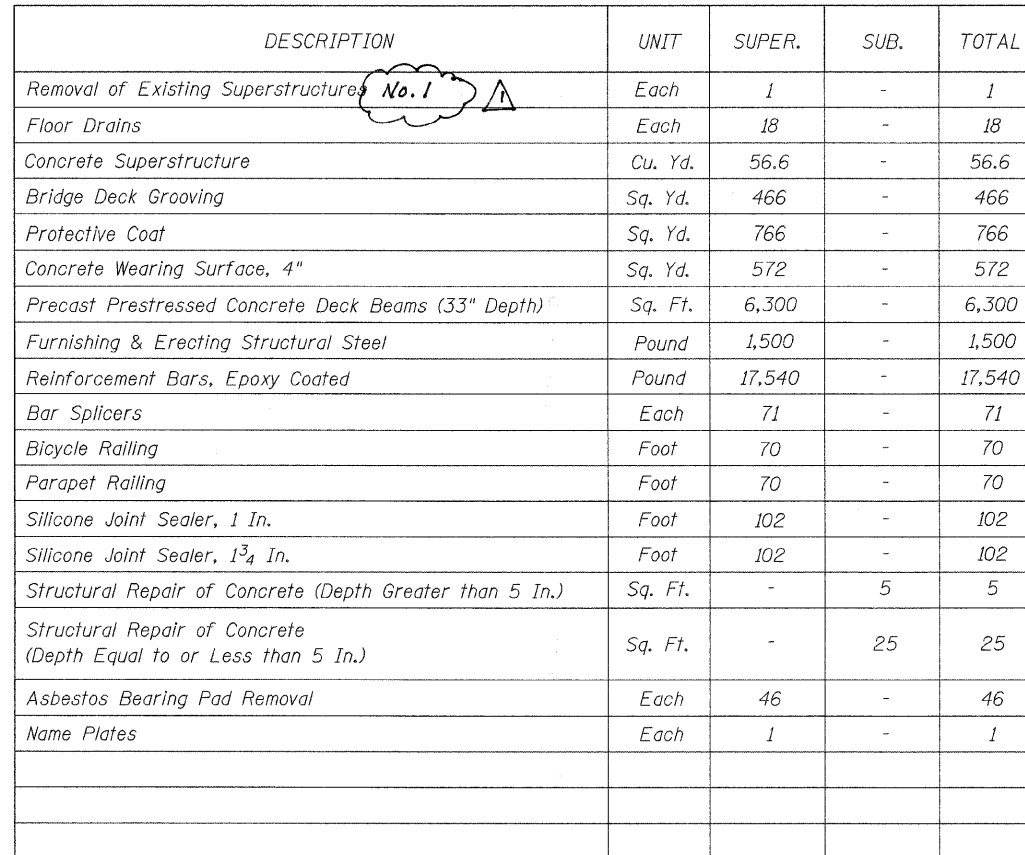 DESCRIPTION UNIT SUPER. SUB. TOTAL
Removal of Existing Superstructures No. 1 1 Each 1 - 1
Floor Drains Each 18 - 18
Concrete Superstructure Cu. Yd. 56.6 - 56.6
Bridge Deck Grooving Sq. Yd. 466 - 466
Protective Coat Sq. Yd. 766 - 766
Concrete Wearing Surface, 4" Sq. Yd. 572 - 572
Precast Prestressed Concrete Deck Beams (33" Depth) Sq. Ft. 6,300 - 6,300
Furnishing & Erecting Structural Steel Pound 1,500 - 1,500
Reinforcement Bars, Epoxy Coated Pound 17,540 - 17,540
Bar Splicers Each 71 - 71
Bicycle Railing Foot 70 - 70
Parapet Railing Foot 70 - 70
Silicone Joint Sealer, 1 In. Foot 102 - 102
Silicone Joint Sealer, 1 3/4 In. Foot 102 - 102
Structural Repair of Concrete (Depth Greater than 5 In.) Sq. Ft. - 5 5
Structural Repair of Concrete
(Depth Equal to or Less than 5 In.) Sq. Ft. - 25 25
Asbestos Bearing Pad Removal Each 46 - 46
Name Plates Each 1 - 1